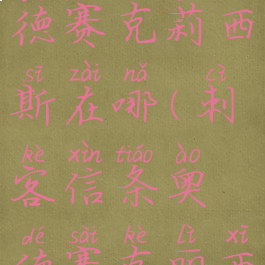 德赛克莉西
sī zài nǎ cì
斯在哪(刺
kè xìn tiáo ào
客信条奥
dé sài kè lì xī
德赛克丽西